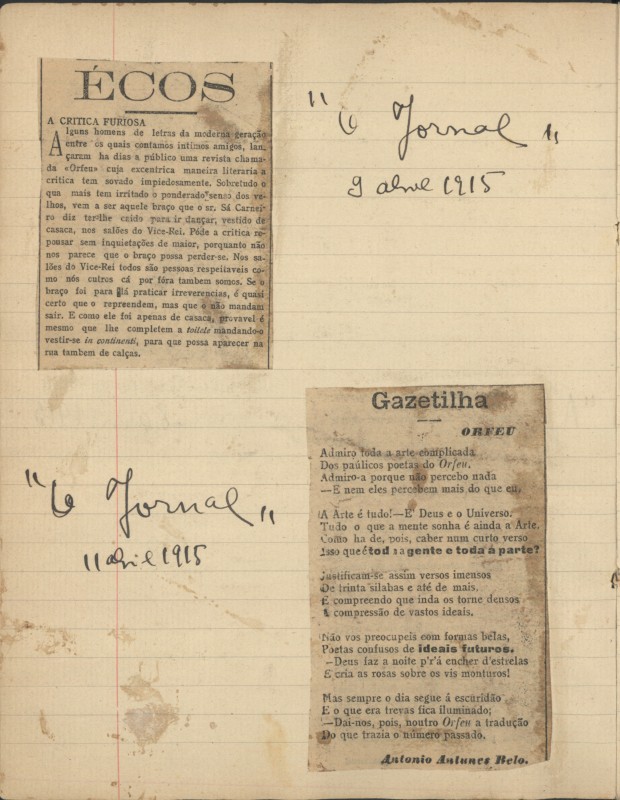 ÉCOS
A CRITICA FURIOSA
Alguns homens de letras da moderna geração
entre os quais contamos intimos amigos, lan-
çaram ha dias a público uma revista chama-
da «Orfeu» cuja excentrica maneira literaria a
critica tem sovado impiedosamente. Sobretudo o
que mais tem irritado o ponderado senso dos ve-
lhos, vem a ser aquele braço que o sr. Sá Carnei-
ro diz ter-lhe caído para ir dançar, vestido de
casaca, nos salões do Vice-Rei. Póde a critica re-
pousar sem inquietações de maior, porquanto não
nos parece que o braço possa perder-se. Nos sa-
lões do Vice-Rei todos são pessoas respeitaveis co-
mo nós outros cá por fóra tambem somos. Se o
braço foi para lá praticar irreverencias, é quasi
certo que o repreendem, mas que o não mandam
sair. E como ele foi apenas de casaca, provavel é
mesmo que lhe completem a toilete mandando-o
vestir-se in continenti, para que possa aparecer na
rua tambem de calças.
"O Jornal"
9 abril 1915
"O Jornal"
11 abril 1915
Gazetilha
ORFEU
Admiro toda a arte complicada
Dos paúlicos poetas do Orfeu.
Admiro-a porque não percebo nada
—E nem eles percebem mais do que eu.
A Arte é tudo!—E' Deus e o Universo.
Tudo o que a mente sonha é ainda a Arte.
Como ha de, pois, caber num curto verso
Isso que é tod a a gente e toda á parte?
Justificam-se assim versos imensos
De trinta silabas e até de mais.
E compreendo que inda os torne densos
A compressão de vastos ideais.
Não vos preocupeis com formas belas,
Poetas confusos de ideais futuros.
—Deus faz a noite p'r'á encher d'estrelas
E cria as rosas sobre os vis monturos!
Mas sempre o dia segue á escuridão
E o que era trevas fica iluminado;
—Dai-nos, pois, noutro Orfeu a tradução
Do que trazia o número passado.
Antonio Antunes Belo.